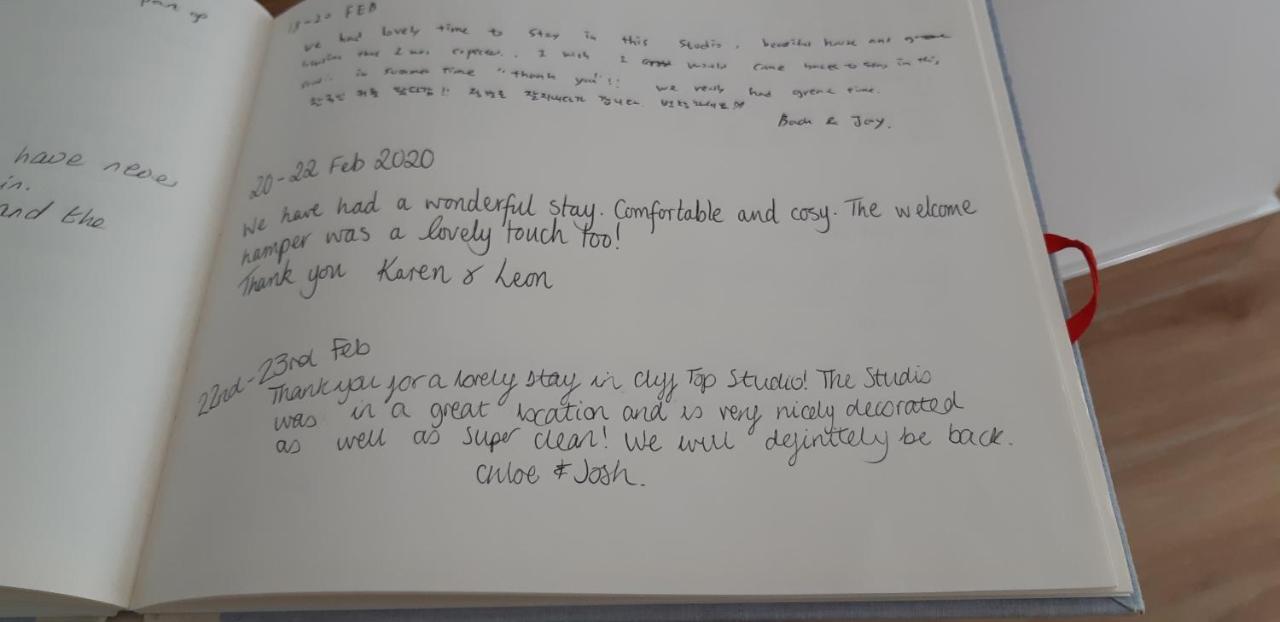 pan up
have never
in.
and the
FEB
we had lovely time to stay in this studio, beautiful house and
I wish I would come back to stay in this,
in summer time "thank you"!! we really had great time.
Bach & Jay.
20-22 Feb 2020
We have had a wonderful stay. Comfortable and cosy. The welcome
hamper was a lovely touch too!
Thank you Karen & Leon
22nd-23rd Feb
Thank you for a lovely stay in Clyff Top Studio! The Studio
was in a great location and is very nicely decorated
as well as super clean! We will definitely be back.
Chloe & Josh.